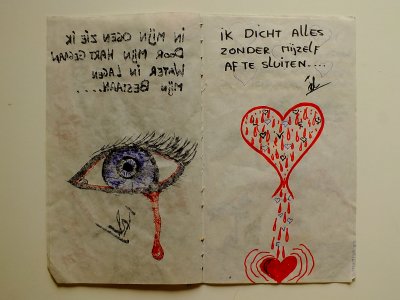 IN MIJN OGEN ZIE IK
DOOR MIJN HART GEGAAN
WATER IN LAGEN
MIJN BESTAAN.....
IK DICHT ALLES
ZONDER MIJZELF
AF TE SLUITEN....